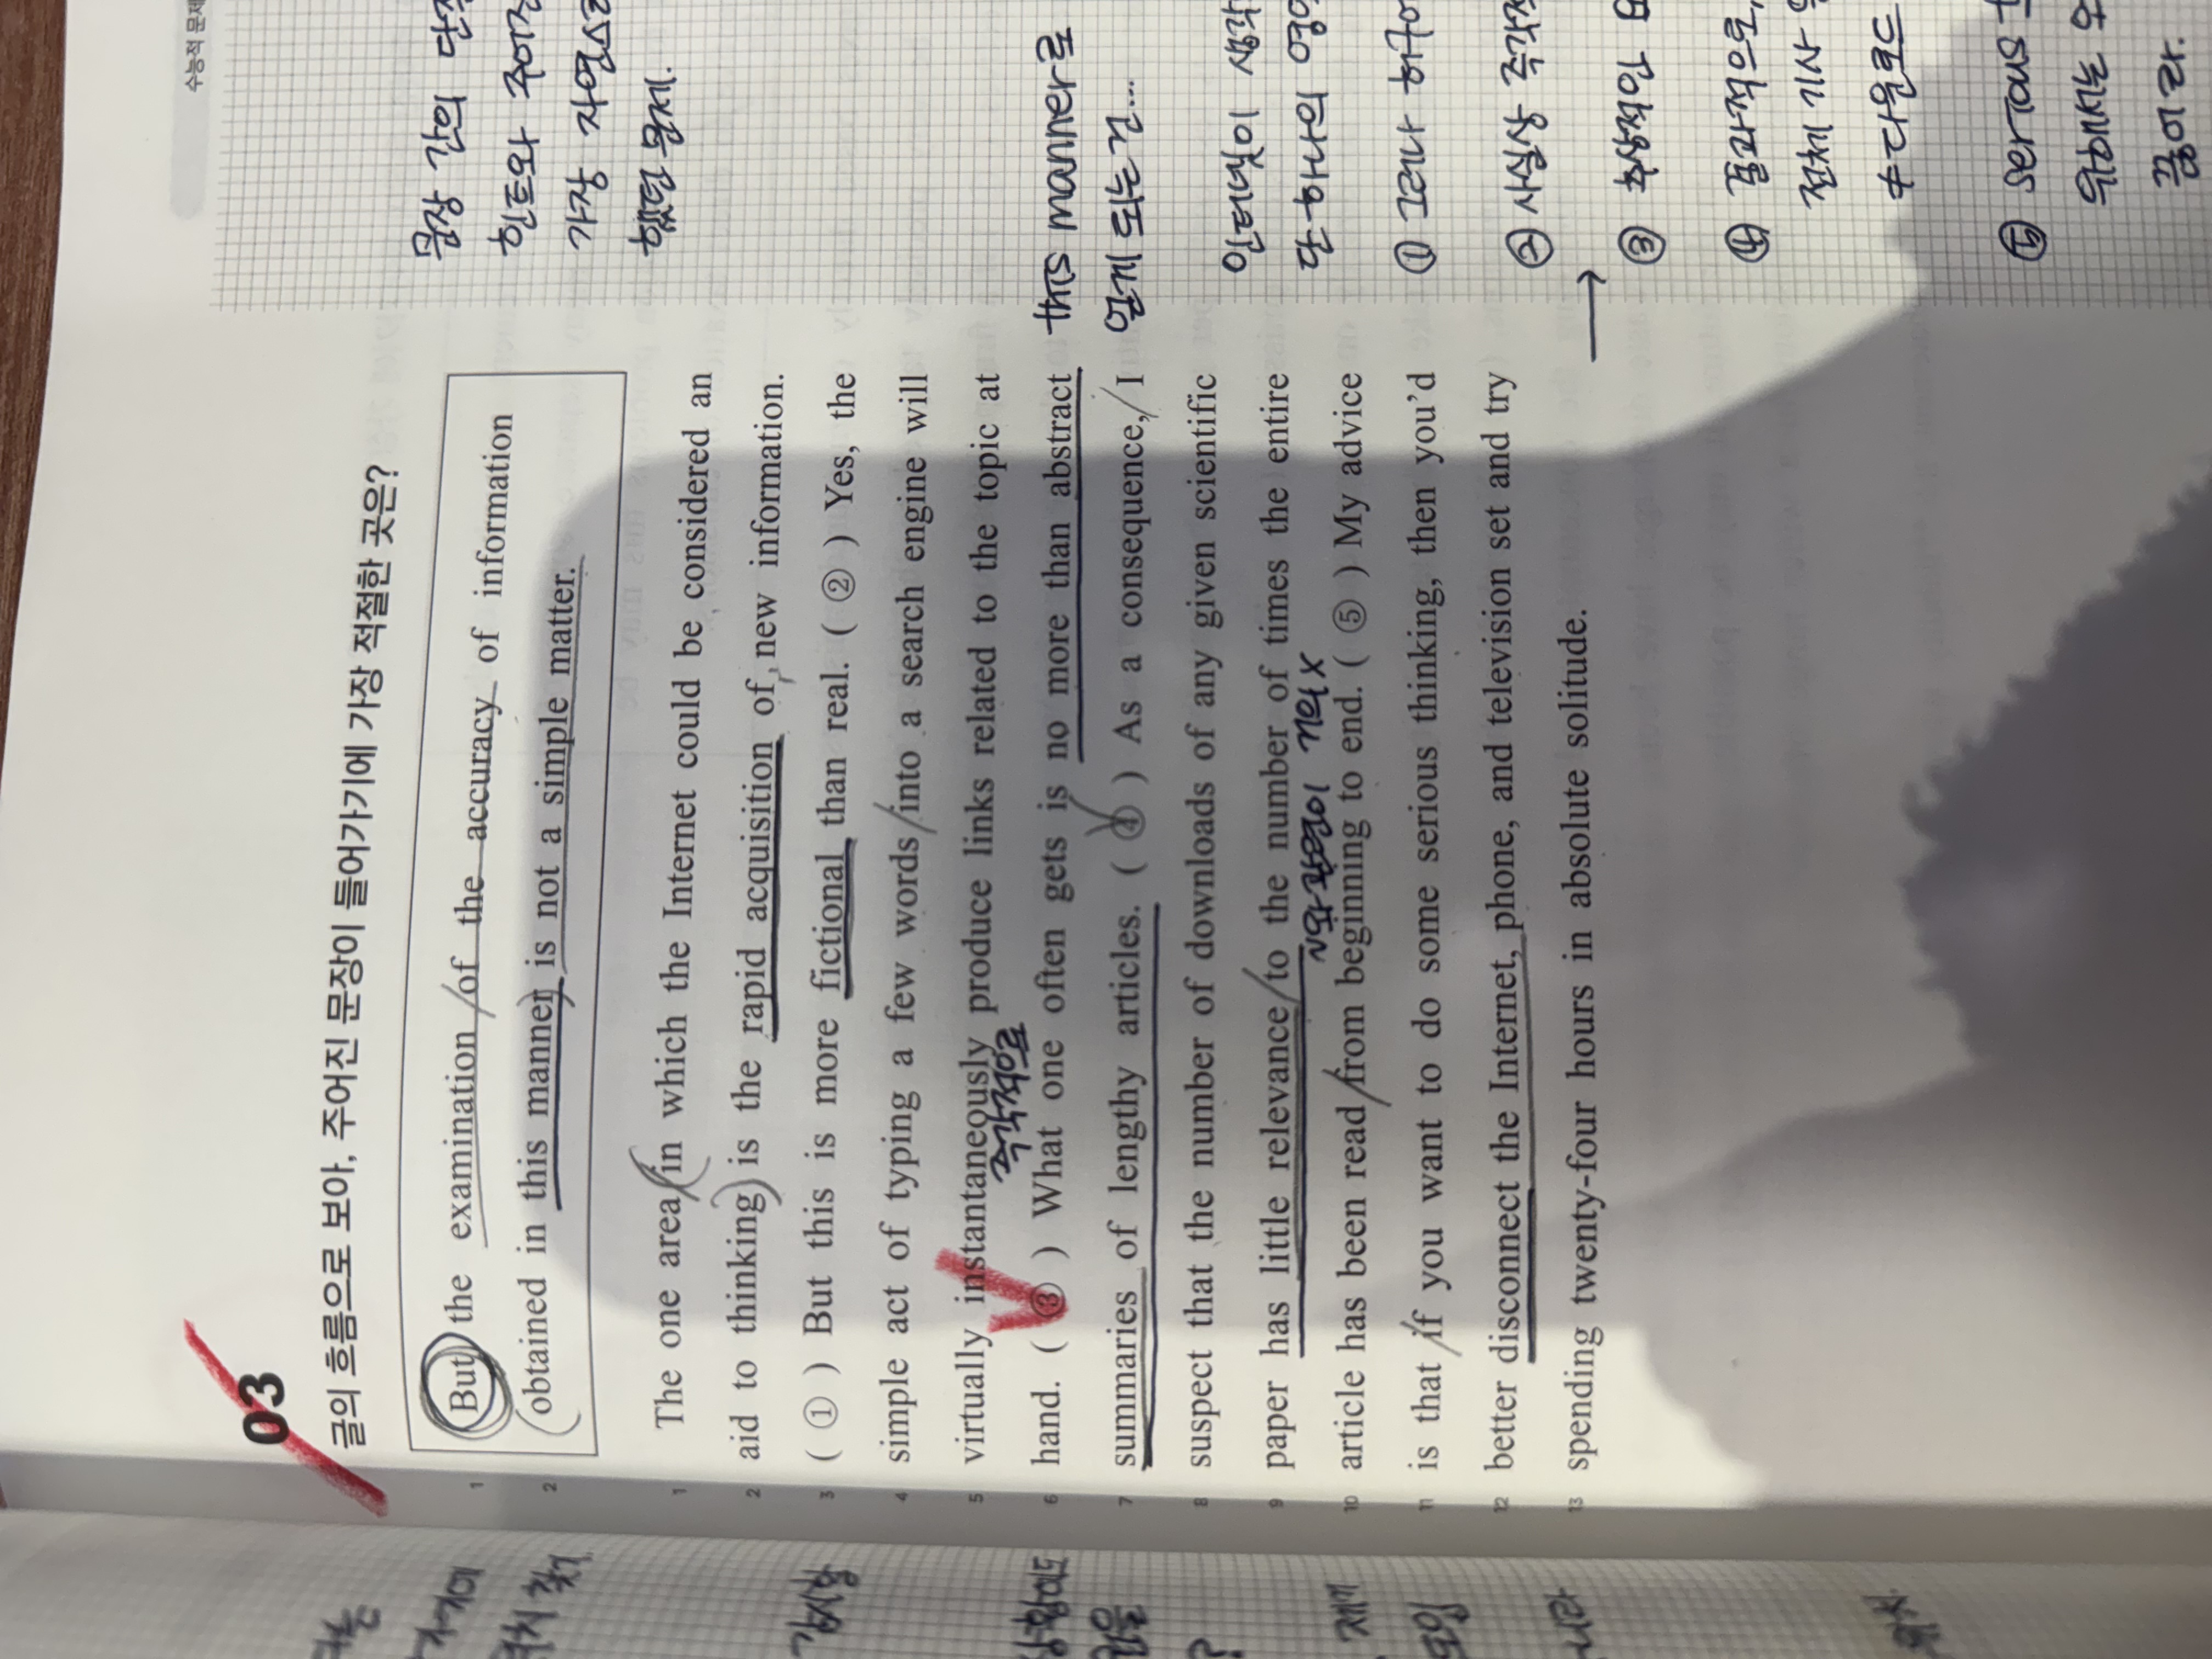 수능적 문제
03
글의 흐름으로 보아, 주어진 문장이 들어가기에 가장 적절한 곳은?
1 But the examination of the accuracy of information
2 obtained in this manner is not a simple matter.
1 The one area in which the Internet could be considered an
2 aid to thinking is the rapid acquisition of new information.
3 ( ① ) But this is more fictional than real. ( ② ) Yes, the
4 simple act of typing a few words into a search engine will
5 virtually instantaneously produce links related to the topic at
즉각적으로
6 hand. ( ③ ) What one often gets is no more than abstract
7 summaries of lengthy articles. ( ④ ) As a consequence, I
8 suspect that the number of downloads of any given scientific
9 paper has little relevance to the number of times the entire
~와 관련이 거의 X
10 article has been read from beginning to end. ( ⑤ ) My advice
11 is that if you want to do some serious thinking, then you'd
12 better disconnect the Internet, phone, and television set and try
13 spending twenty-four hours in absolute solitude.
문장 간의
힌트와
가장
했던 문제.
this manner로
얻게 되는 건....
인터넷이
또 하나의
① 그러나
② 사실상
→ ③ 추상적
④ 결과적으로,
전체 기사
≠ 다운로드
⑤ serious
위해서는
끊어라.